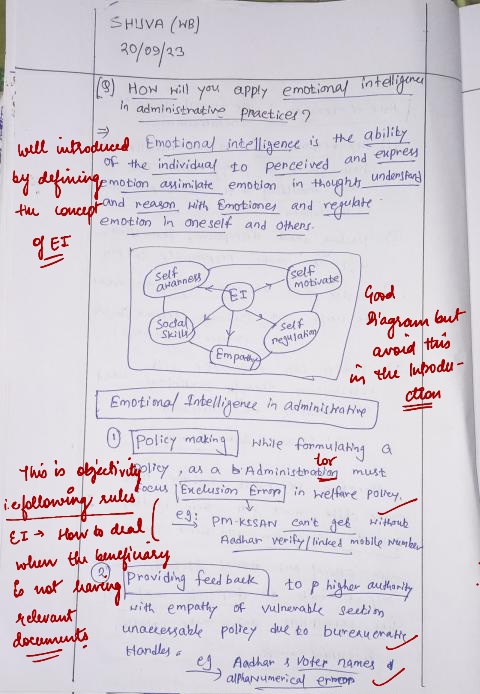 SHUVA (WB)
20/09/23
(Q) How will you apply emotional intelligence
in administrative practices?
⇒ Emotional intelligence is the ability
of the individual to perceived and express
emotion assimilate emotion in thoughts understand
and reason with Emotiones and regulate
emotion in oneself and others.
well introduced
by defining
the concept
of EI
Self
awarness
Self
motivate
EI
Social
Skills
Self
regulation
Empathy
Good
Diagram but
avoid this
in the Introdu-
ction
Emotional Intelligence in administrative
① Policy making while formulating a
policy, as a Administration must
tor
focus Exclusion Error in welfare policy.
eg: PM-KISAN can't get without
Aadhar verify/linked mobile number
This is objectivity
i.e following rules
EI → How to deal
when the beneficiary
is not having
relevant
documents
② Providing feedback to p higher authority
with empathy of vulnerable section
unaccessable policy due to bureaucratic
Handles.
eg Aadhar & Voter names &
alphanumerical error